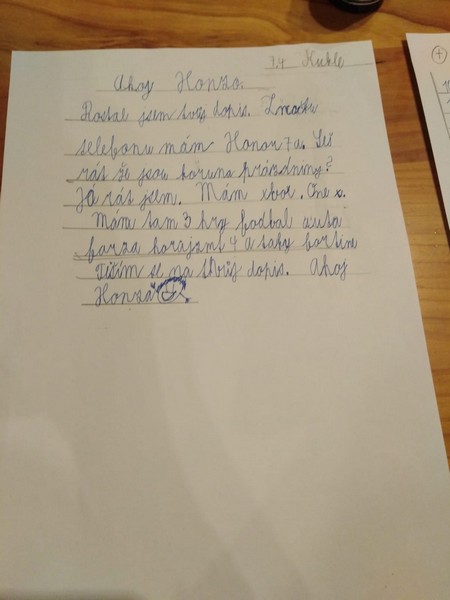 7.4 Kuhle
Ahoj Honzo.
Dostal jsem tvůj dopis. Značku
telefonu mám Honor 7a. Seš
rát že jsou koruna prázdniny?
Já rát jsem. Mám xbox. One x.
Mám tam 3 hry fodbal auta
forza horajzmt 4 a taky fortin
Těším se na tvůj dopis. Ahoj
Honza